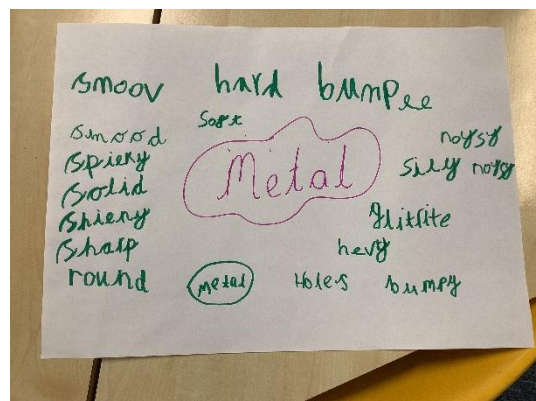 smoov hard bumpee
soft
smood
noysy
Metal
spieky
sily noysy
solid
shieny
glitlite
sharp
hevy
round
metal
Holes
bumpy